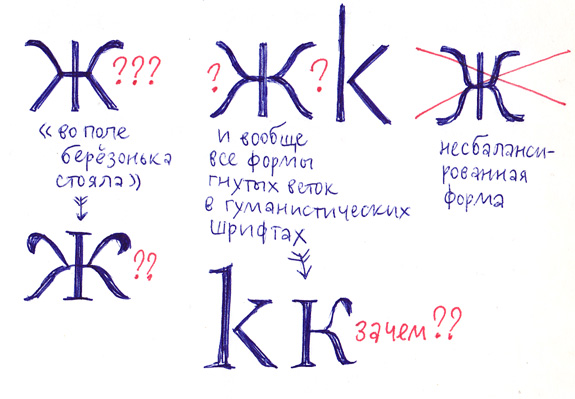 Ж???
«во поле
берёзонька
стояла»
Ж??
?Ж?k
и вообще
все формы
гнутых веток
в гуманистических
шрифтах
kк зачем??
Ж
несбаланси-
рованная
форма